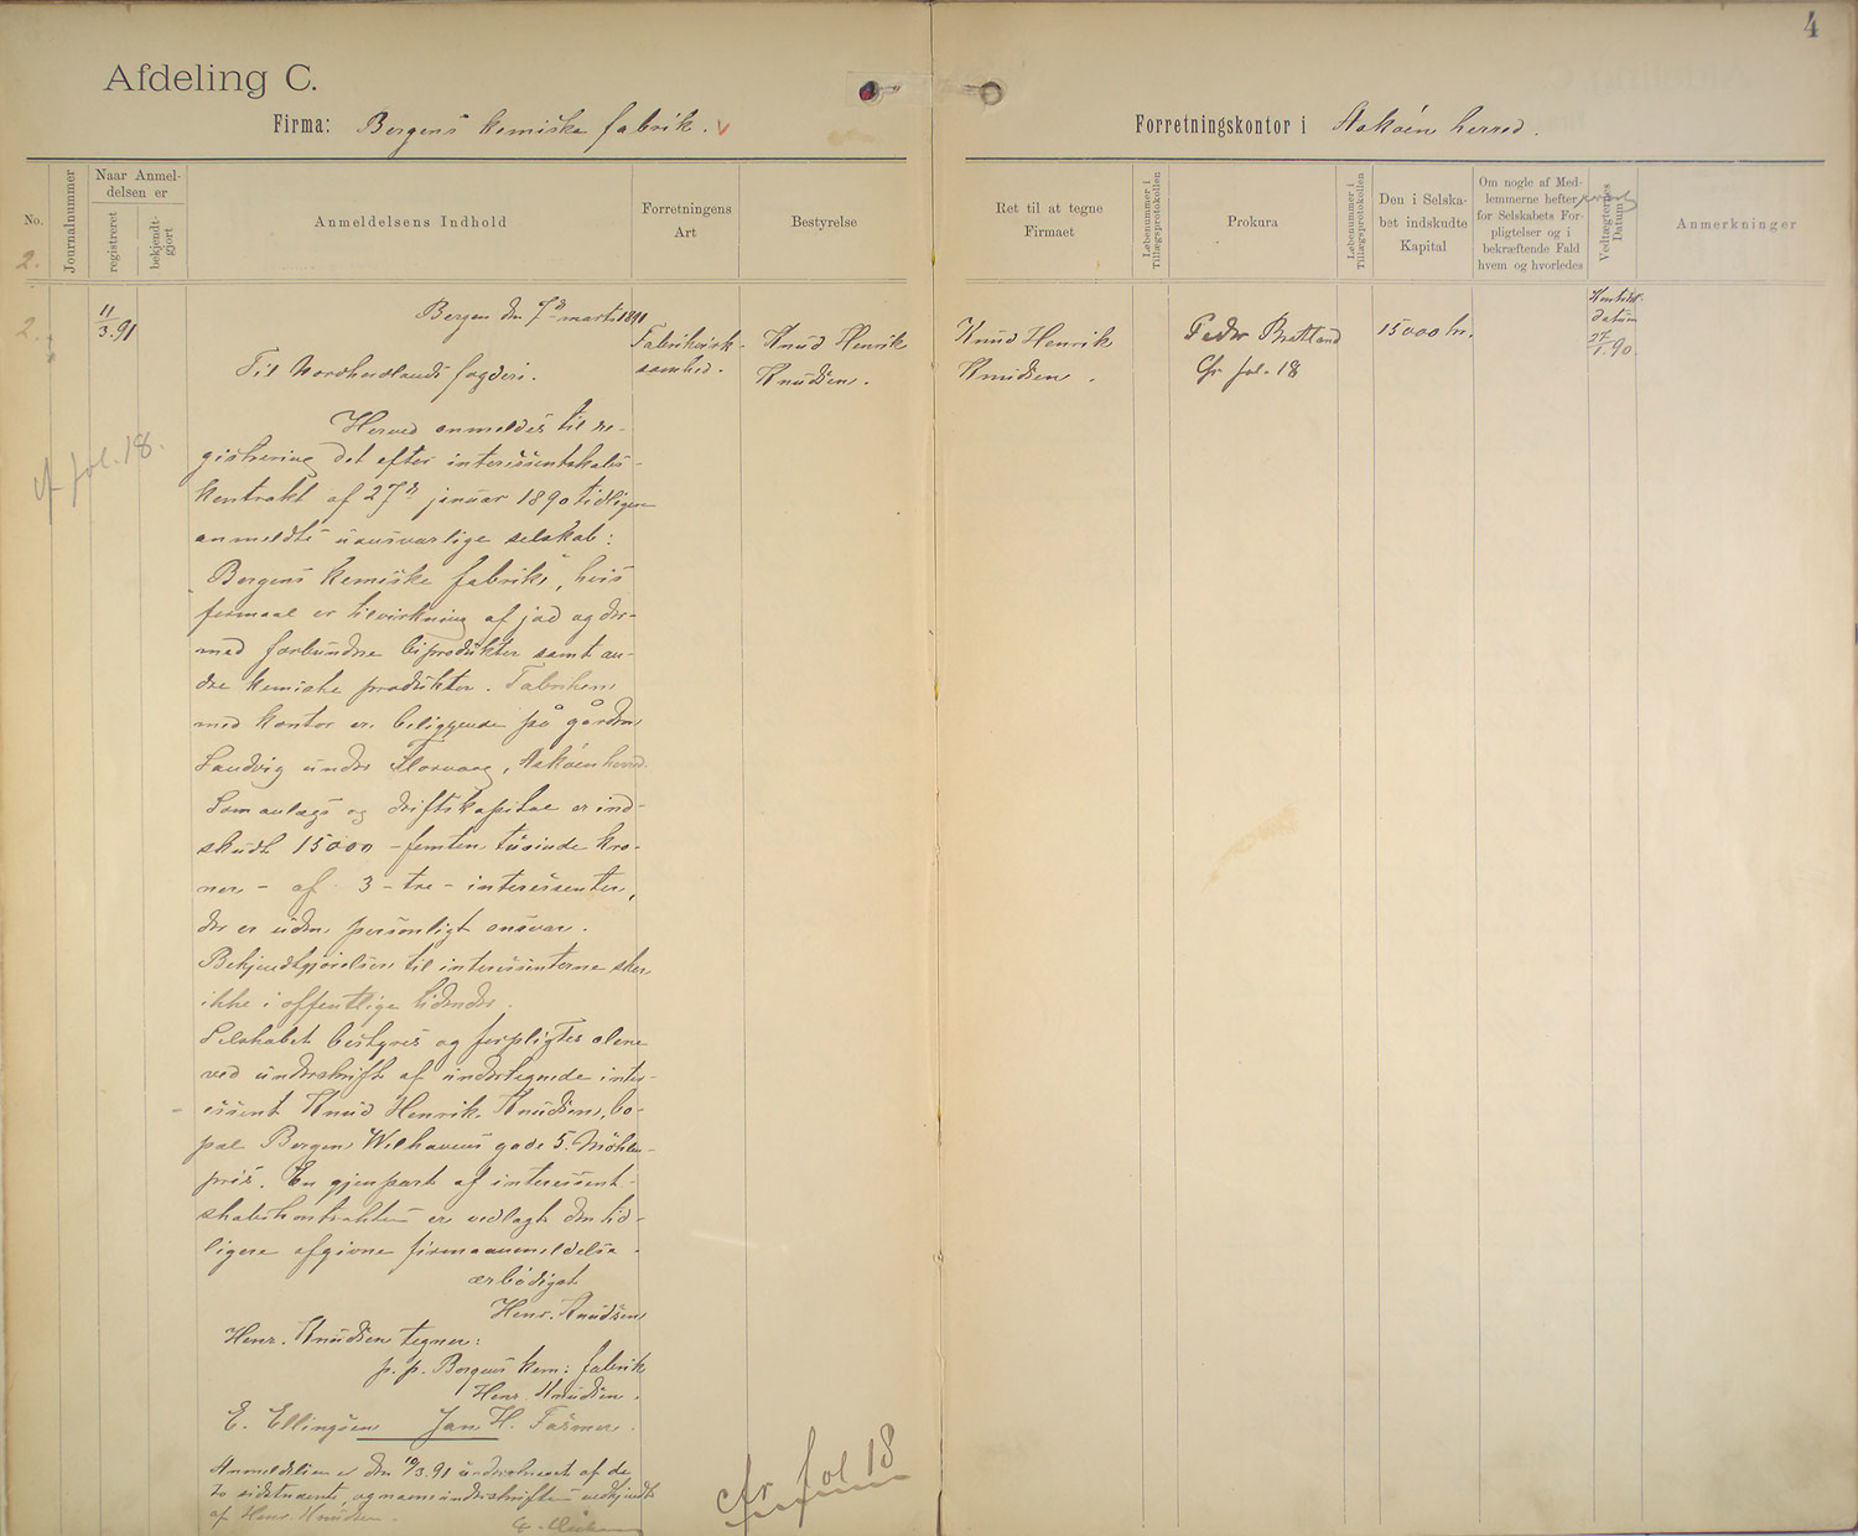 4
Afdeling C.
Firma: Bergens kemiske fabrik.
Forretningskontor i Askøen herred.
No.
Journalnummer
Naar Anmel-
delsen er
registreret
bekjendt-
gjort
Anmeldelsens Indhold
Forretningens
Art
Bestyrelse
Ret til at tegne
Firmaet
Løbenummer i
Tillægsprotokollen
Prokura
Løbenummer i
Tillægsprotokollen
Den i Selska-
bet indskudte
Kapital
Om nogle af Med-
lemmerne hefter
for Selskabets For-
pligtelser og i
bekræftende Fald
hvem og hvorledes
Vedtægternes
Datum
Anmerkninger
2.
2.
11/3.91
cf fol. 18.
Bergen den 7de marts 1891
Til Nordhordlands fogderi.
Herved anmeldes til re-
gistrering det efter interessentskabs-
kontrakt af 27de januar 1890 tidligere
anmeldte uansvarlige selskab:
"Bergens kemiske fabrik", hvis
formaal er tilvirkning af jod og der-
med forbundne biprodukter samt an-
dre kemiske produkter. Fabriken
med kontor er beliggende på gården
Sandvig under Florvaag, Askøen herred.
Som anlægs og driftskapital er ind-
skudt 15000 - femten tusinde kro-
ner - af 3 - tre - interessenter,
der er uden personligt ansvar.
Bekjendtgjørelser til interessenterne sker
ikke i offentlige tidender.
Selskabet bestyres og forpligtes alene
ved underskrift af undertegnede inter-
essent Knud Henrik Knudsen, bo-
pæl Bergen Welhavens gade 5. Møhlen-
pris. En gjenpart af interessent-
skabskontrakten er vedlagt den tid-
ligere afgivne firmaanmeldelse.
ærbødigst
Henr. Knudsen
Henr. Knudsen tegner:
p. p. Bergens kem: fabrik
Henr. Knudsen.
E. Ellingsen Jan H. Fasmer.
Anmeldelsen er den 10/3.91 underskrevet af de
to sidstnævnte, og navneunderskriften vedkjendt
af Henr. Knudsen.
Fabrikvirk-
somhed.
Knud Henrik
Knudsen.
cfr fol 18
Knud Henrik
Knudsen.
Peder Brattland
Cfr fol. 18
15000 kr.
Kontrkt.
datum
27/1.90.